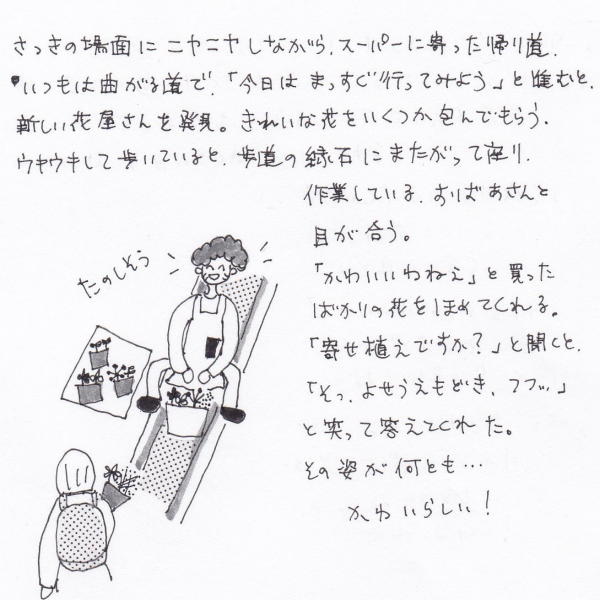 さっきの場面にニヤニヤしながら、スーパーに寄った帰り道、
いつもは曲がる道で、「今日はまっすぐ行ってみよう」と進むと、
新しい花屋さんを発見。きれいな花をいくつか包んでもらう、
ウキウキして歩いていると、歩道の縁石にまたがって座り、
作業している、おばあさんと
目が合う。
「かわいいわねぇ」と買った
ばかりの花をほめてくれる。
「寄せ植えですか?」と聞くと、
「そっ、よせうえもどき、フフッ」
と笑って答えてくれた。
その姿が何とも…
かわいらしい!
たのしそう